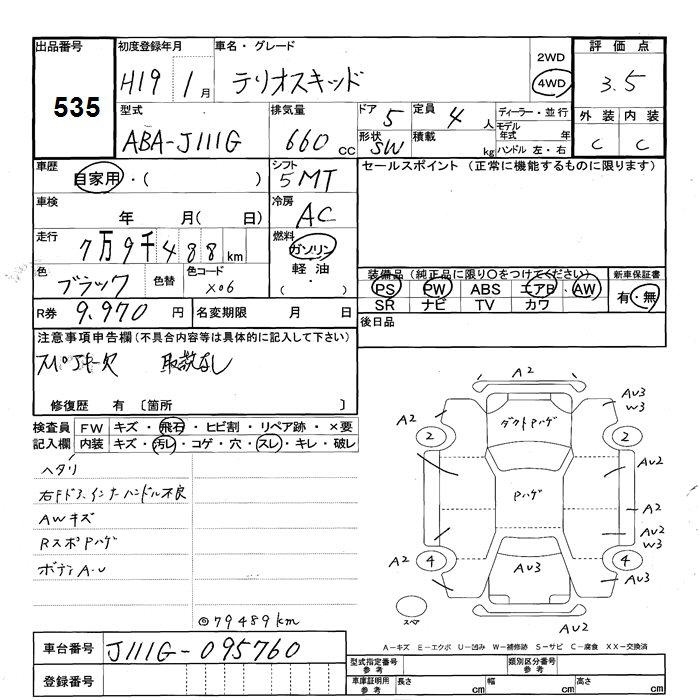 出品番号 初度登録年月 車名・グレード 評価点
535 H19 1月 テリオスキッド 2WD 4WD 3.5
型式 排気量 ドア 5 定員 4人 ディーラー・並行 外装 内装
ABA-J111G 660cc 形状 SW 積載 kg モデル年式 年 ハンドル 左・右 C C
車歴 自家用・( ) シフト 5MT セールスポイント (正常に機能するものに限ります)
車検 年 月( 日) 冷房 AC
走行 7万9千488km 燃料 ガソリン 軽油 ( ・ )
色 ブラック 色替 色コード X06 装備品(純正品に限り○をつけてください) 新車保証書
PS PW ABS エアB AW 有・無
SR ナビ TV カワ
R券 9.970円 名変期限 月 日 後日品
注意事項申告欄(不具合内容等は具体的に記入して下さい)
スペアキー欠 取説なし
修復歴 有 〔箇所 〕
検査員記入欄 FW キズ・飛石・ヒビ割・リペア跡・×要
内装 キズ・汚レ・コゲ・穴・スレ・キレ・破レ
ヘタリ
右Fドアインナーハンドル不良
AWキズ
RスポPハゲ
ボディA・U
◎79489km
A2
A2 AU3 W3
ダクトPハゲ
2 2
AU2
Pハゲ
A2
AU2 W3
A2 4 4 A2
AU3
スペア
AU2
A－キズ E－エクボ U－凹み W－補修跡 S－サビ C－腐食 XX－交換済
車台番号 J111G-095760
登録番号
型式指定番号 参考 類別区分番号 参考
車庫証明用 参考 長さ cm 幅 cm 高さ cm